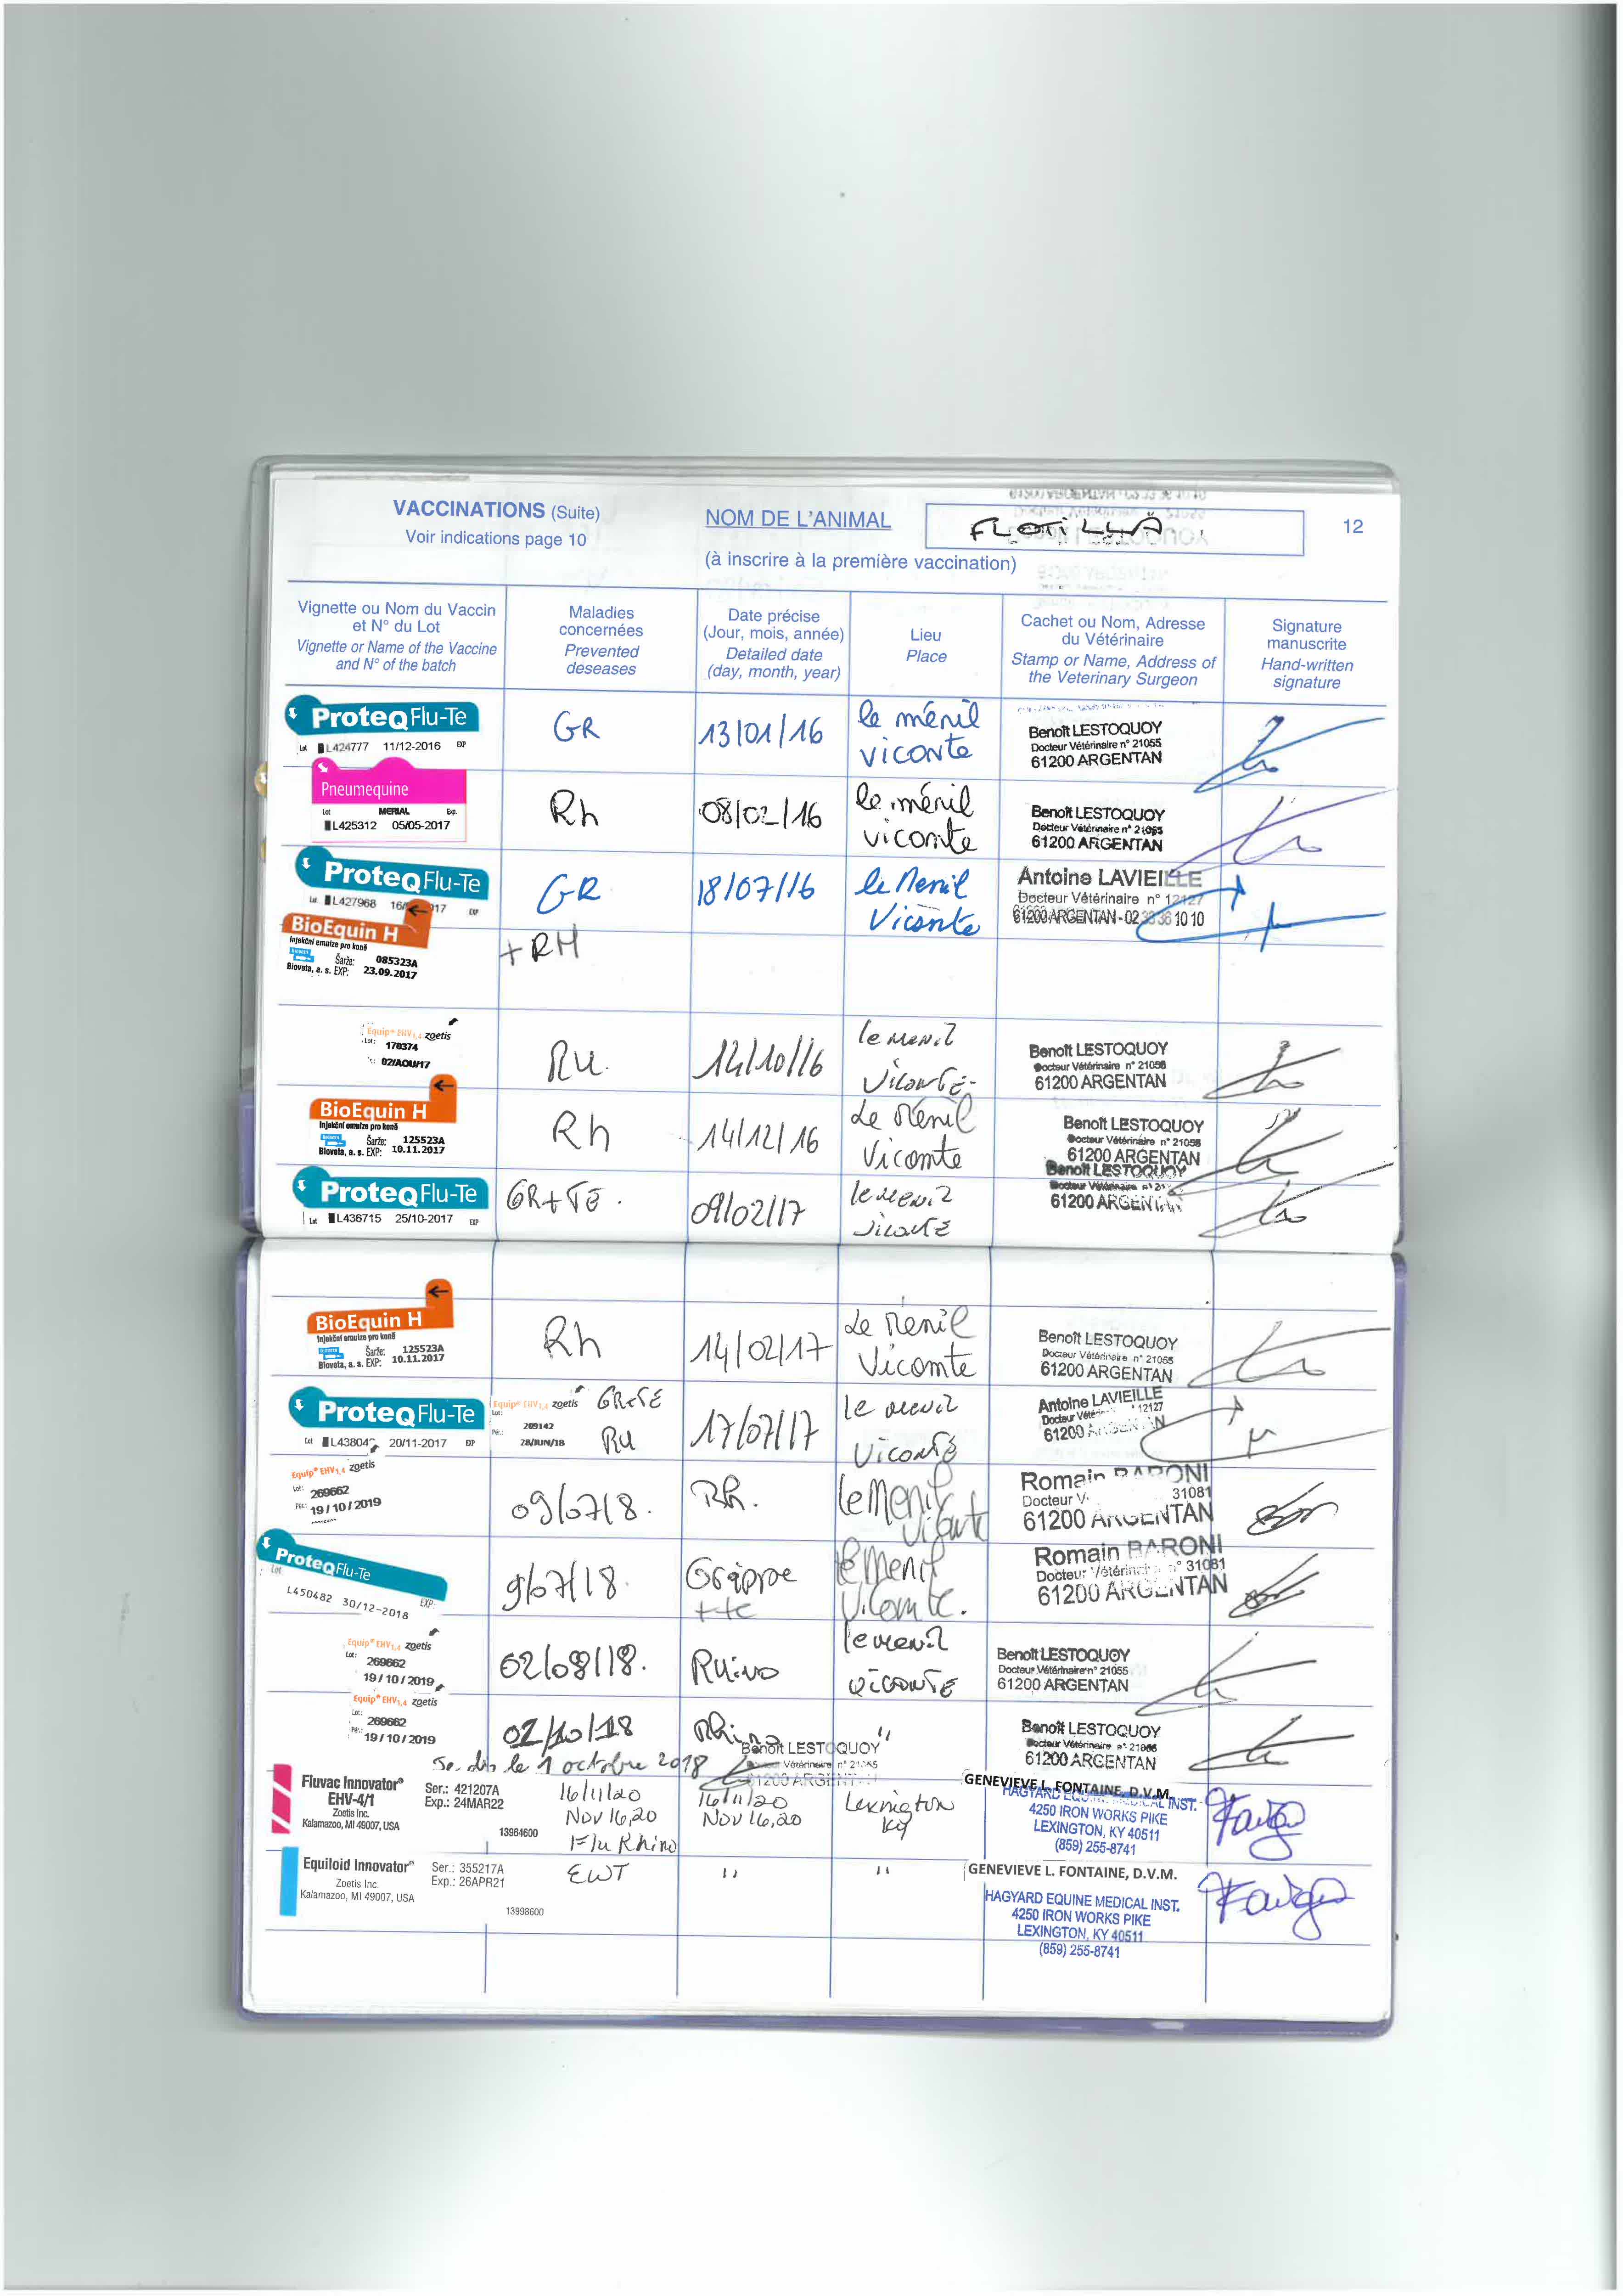 VACCINATIONS (Suite)
Voir indications page 10
NOM DE L'ANIMAL
FLOTILLA
12
(à inscrire à la première vaccination)
Vignette ou Nom du Vaccin
et N° du Lot
Vignette or Name of the Vaccine
and N° of the batch
Maladies
concernées
Prevented
deseases
Date précise
(Jour, mois, année)
Detailed date
(day, month, year)
Lieu
Place
Cachet ou Nom, Adresse
du Vétérinaire
Stamp or Name, Address of
the Veterinary Surgeon
Signature
manuscrite
Hand-written
signature
ProteqFlu-Te
Lot L424777 11/12-2016 EXP
GR
13/01/16
le ménil
viconte
Benoît LESTOQUOY
Docteur Vétérinaire n° 21055
61200 ARGENTAN
Pneumequine
Lot MERIAL Exp.
L425312 05/05-2017
Rh
08/02/16
le ménil
vicomte
Benoît LESTOQUOY
Docteur Vétérinaire n° 21055
61200 ARGENTAN
ProteqFlu-Te
Lot L427968 16/ 017 EXP
GR
18/07/16
le Menil
Viconte
Antoine LAVIEILLE
Docteur Vétérinaire n° 12127
61200 ARGENTAN - 02 33 36 10 10
BioEquin H
Injekční emulze pro koně
Šarže: 085323A
Bioveta, a. s. EXP: 23.09.2017
+ RH
Equip® EHV1,4 zoetis
Lot: 170374
02/AOU/17
RU.
12/10/16
le menil
Viconté-
Benoît LESTOQUOY
Docteur Vétérinaire n° 21055
61200 ARGENTAN
BioEquin H
Injekční emulze pro koně
Šarže: 125523A
Bioveta, a. s. EXP: 10.11.2017
Rh
14/12/16
Le Ménil
Vicomte
Benoît LESTOQUOY
Docteur Vétérinaire n° 21055
61200 ARGENTAN
ProteqFlu-Te
Lot L436715 25/10-2017 EXP
GR+TE.
09/02/17
le menil
viconté
Benoît LESTOQUOY
61200 ARGENTAN
BioEquin H
Injekční emulze pro koně
Šarže: 125523A
Bioveta, a. s. EXP: 10.11.2017
Rh
14/02/17
Le Menil
Vicomte
Benoît LESTOQUOY
Docteur Vétérinaire n° 21055
61200 ARGENTAN
ProteqFlu-Te
Lot L43804 20/11-2017 EXP
Equip® EHV1,4 zoetis
Lot: 209142
Pér.: 28/JUN/18
GR+TE
RU
17/07/17
le menil
Viconté
Antoine LAVIEILLE
Docteur Vété 12127
61200 ARGENTAN
Equip® EHV1,4 zoetis
Lot: 269662
Pér.: 19/10/2019
09/07/8.
Rh.
le Menil
Viconte
Romain BARONI
Docteur V 31081
61200 ARGENTAN
ProteqFlu-Te
Lot
L450482 30/12-2018 EXP
9/07/18.
Grippe
+te
le Menil
Vicomte.
Romain BARONI
Docteur Vétérinaire n° 31081
61200 ARGENTAN
Equip® EHV1,4 zoetis
Lot: 269662
19/10/2019
02/08/18.
Rhino
le menil
viconté
Benoît LESTOQUOY
Docteur Vétérinaire n° 21055
61200 ARGENTAN
Equip® EHV1,4 zoetis
Lot: 269662
Pér.: 19/10/2019
02/10/18
Rhino
"
Benoît LESTOQUOY
Docteur Vétérinaire n° 21055
61200 ARGENTAN
le 1 octobre 2018
Benoît LESTOQUOY
Vétérinaire n° 21055
61200 ARGENTAN
Fluvac Innovator®
EHV-4/1
Zoetis Inc.
Kalamazoo, MI 49007, USA
Ser.: 421207A
Exp.: 24MAR22
13964600
16/11/20
Nov 16,20
Flu Rhino
16/11/20
Nov 16,20
Lexington
Ky
GENEVIEVE L. FONTAINE, D.V.M.
HAGYARD EQUINE MEDICAL INST.
4250 IRON WORKS PIKE
LEXINGTON, KY 40511
(859) 255-8741
Equiloid Innovator®
Zoetis Inc.
Kalamazoo, MI 49007, USA
Ser.: 355217A
Exp.: 26APR21
13998600
EWT
"
"
GENEVIEVE L. FONTAINE, D.V.M.
HAGYARD EQUINE MEDICAL INST.
4250 IRON WORKS PIKE
LEXINGTON, KY 40511
(859) 255-8741